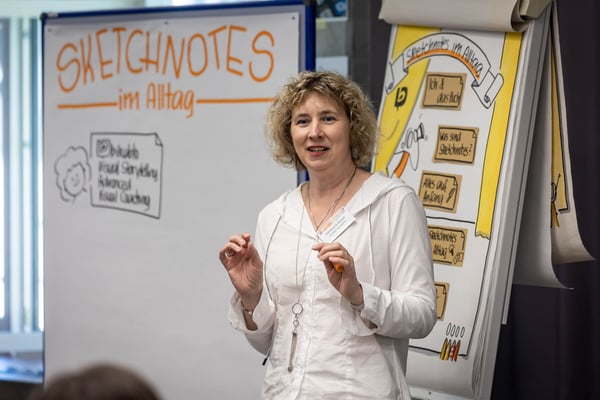 SKETCHNOTES
im Alltag
Visual Storytelling
Advanced
Visual Coaching
Sketchnotes im Alltag
Ich &
Was sind
Sketchnotes?
Alles auf
Anfang
Sketchnotes
Alltag